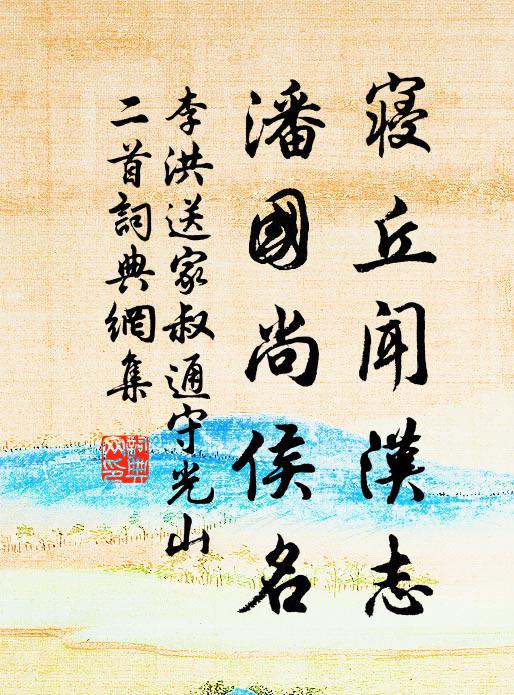 寑丘聞漢志
潘國尚侯名
李洪送家叔通守光山
二首詞典網集